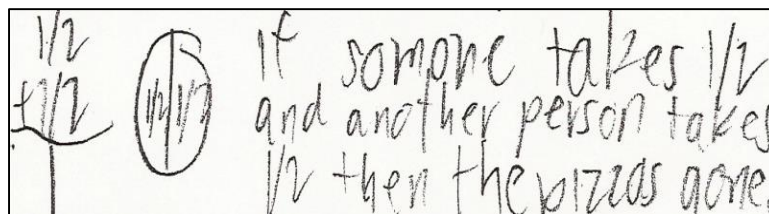 1/2
+1/2
1
1/2 1/2
If somone takes 1/2
and another person takes
1/2 then the pizzas gone.